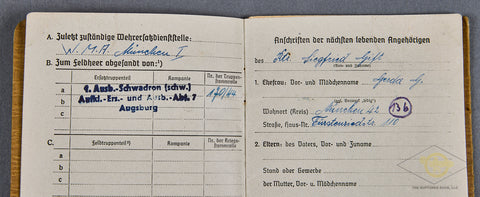 A. Zuletzt zuständige Wehrersatzdienststelle:
W. M. A. München I
B. Zum Feldheer abgesandt von:¹)
Ersatztruppenteil
Kompanie
Nr. der Truppen-
stammrolle
a
4. Ausb.-Schwadron (schw.)
Aufkl.-Ers.- und Ausb.-Abt. 7
Augsburg
170/44
b
c
C.
Feldtruppenteil²)
Kompanie
Nr. der Kriegs-
stammrolle
a
b
c
Anschriften der nächsten lebenden Angehörigen
des Siegfried
(Vor- und Zuname)
1. Ehefrau: Vor- und Mädchenname Gerda G.
Wohnort (Kreis) München 42
13b
Straße, Haus-Nr. Fürstenriedstr. 110
2. Eltern: des Vaters, Vor- und Zuname
Stand oder Gewerbe
der Mutter, Vor- u. Mädchenname